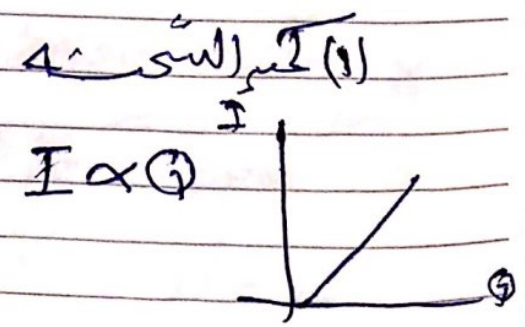 (1) كمية الشحنة
I
I ∝ Q
Q